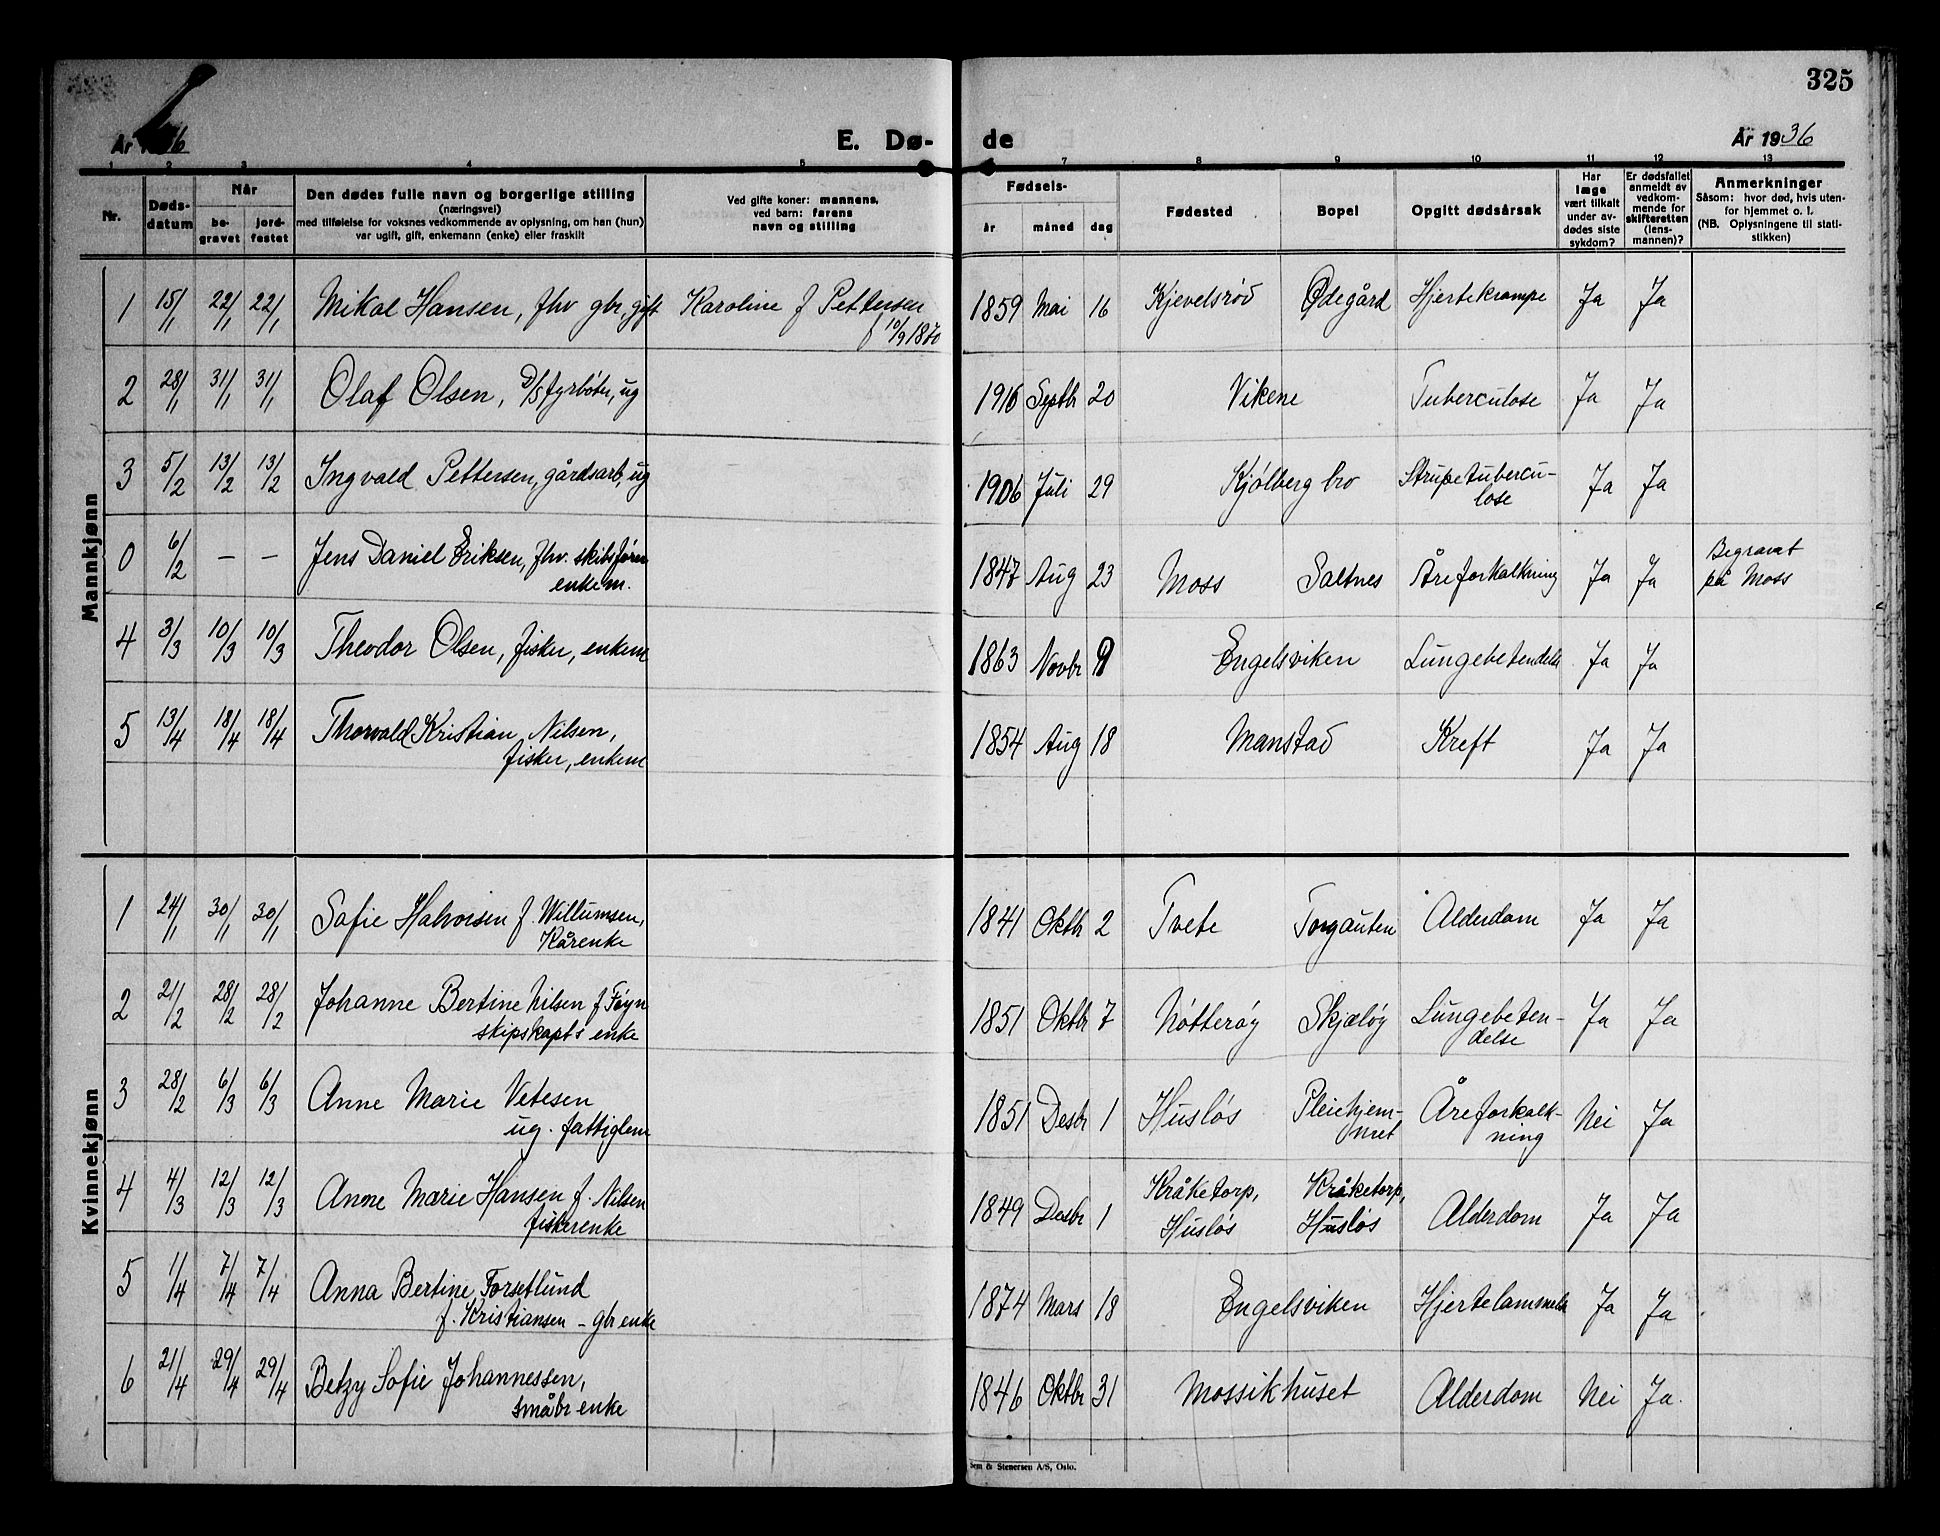 325
År 6 E. Dø- de År 1936
1 2 3 4 5 7 8 9 10 11 12 13
Nr. Døds-datum Når be-gravet jord-festet Den dødes fulle navn og borgerlige stilling (næringsvei) med tilføielse for voksnes vedkommende av oplysning, om han (hun) var ugift, gift, enkemann (enke) eller fraskilt Ved gifte koner: mannens, ved barn: farens navn og stilling Fødsels- år måned dag Fødested Bopel Opgitt dødsårsak Har læge vært tilkalt under av-dødes siste sykdom? Er dødsfallet anmeldt av vedkom-mende for skifteretten (lens-mannen)? Anmerkninger Såsom: hvor død, hvis uten-for hjemmet o. l. (NB. Oplysningene til stati-stikken)
Mannkjønn
1 15/1 22/1 22/1 Mikal Hansen, fhv gbr, gift Karoline f Pettersen f 10/9 1870 1859 Mai 16 Kjevelsrød Ødegård Hjertekrampe Ja Ja
2 28/1 31/1 31/1 Olaf Olsen, D/S fyrbøter, ug 1916 Septbr 20 Vikene Tuberculose Ja Ja
3 5/2 13/2 13/2 Ingvald Pettersen, gårdsarb, ug 1906 Juli 29 Kjølberg bro Strupetubercu-lose Ja Ja
0 6/2 – – Jens Daniel Eriksen, fhv. skibsfører enkem. 1847 Aug 23 Moss Saltnes Åreforkalkning Ja Ja Begravet på Moss
4 3/3 10/3 10/3 Theodor Olsen, fisker, enkem 1863 Novbr 9 Engelsviken Lungebetendelse Ja Ja
5 13/4 18/4 18/4 Thorvald Kristian Nilsen, fisker, enkem 1854 Aug 18 Manstad Kreft Ja Ja
Kvinnekjønn
1 24/1 30/1 30/1 Sofie Halvorsen f. Willumsen, Kårenke 1841 Oktbr 2 Tvete Torgauten Alderdom Ja Ja
2 21/2 28/2 28/2 Johanne Bertine Nilsen f Føyn skipskapts enke 1851 Oktbr 7 Nøtterøy Skjæløy Lungebeten-delse Ja Ja
3 28/2 6/3 6/3 Anne Marie Vetesen ug. fattiglem 1851 Desbr 1 Husløs Pleiehjem-met Åreforkalk-ning Nei Ja
4 4/3 12/3 12/3 Anne Marie Hansen f. Nilsen fiskerenke 1849 Desbr 1 Kråketorp, Husløs Kråketorp, Husløs Alderdom Ja Ja
5 1/4 7/4 7/4 Anna Bertine Forsetlund f. Kristiansen – gbr enke 1874 Mars 18 Engelsviken Hjertelammelse Ja Ja
6 21/4 29/4 29/4 Betzy Sofie Johannessen, småbr enke 1846 Oktbr 31 Mossikhuset Alderdom Nei Ja.
Sem & Stenersen A/S, Oslo.